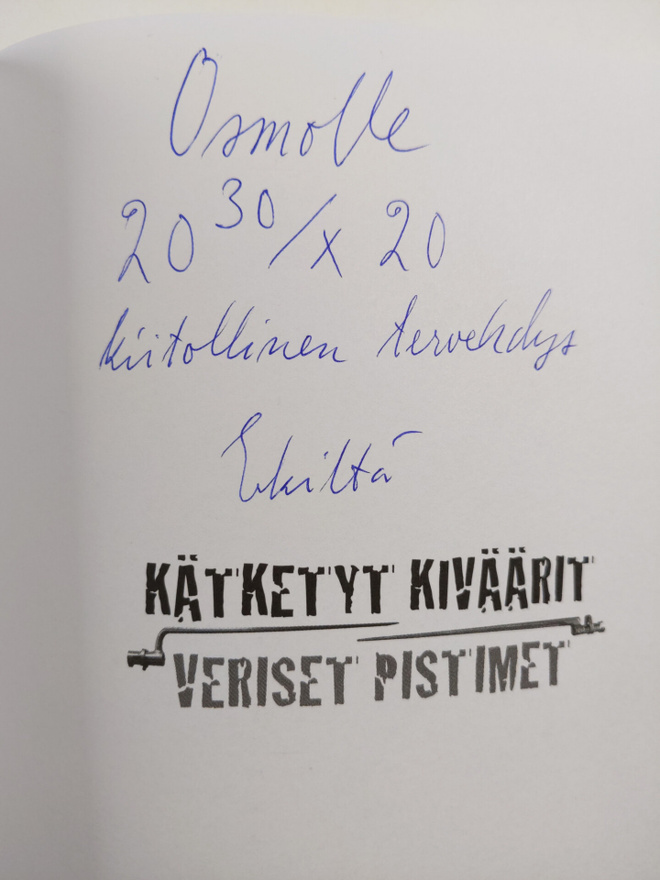 Osmolle
20 30/x 20
kiitollinen tervehdys
Erkiltä
KÄTKETYT KIVÄÄRIT
VERISET PISTIMET